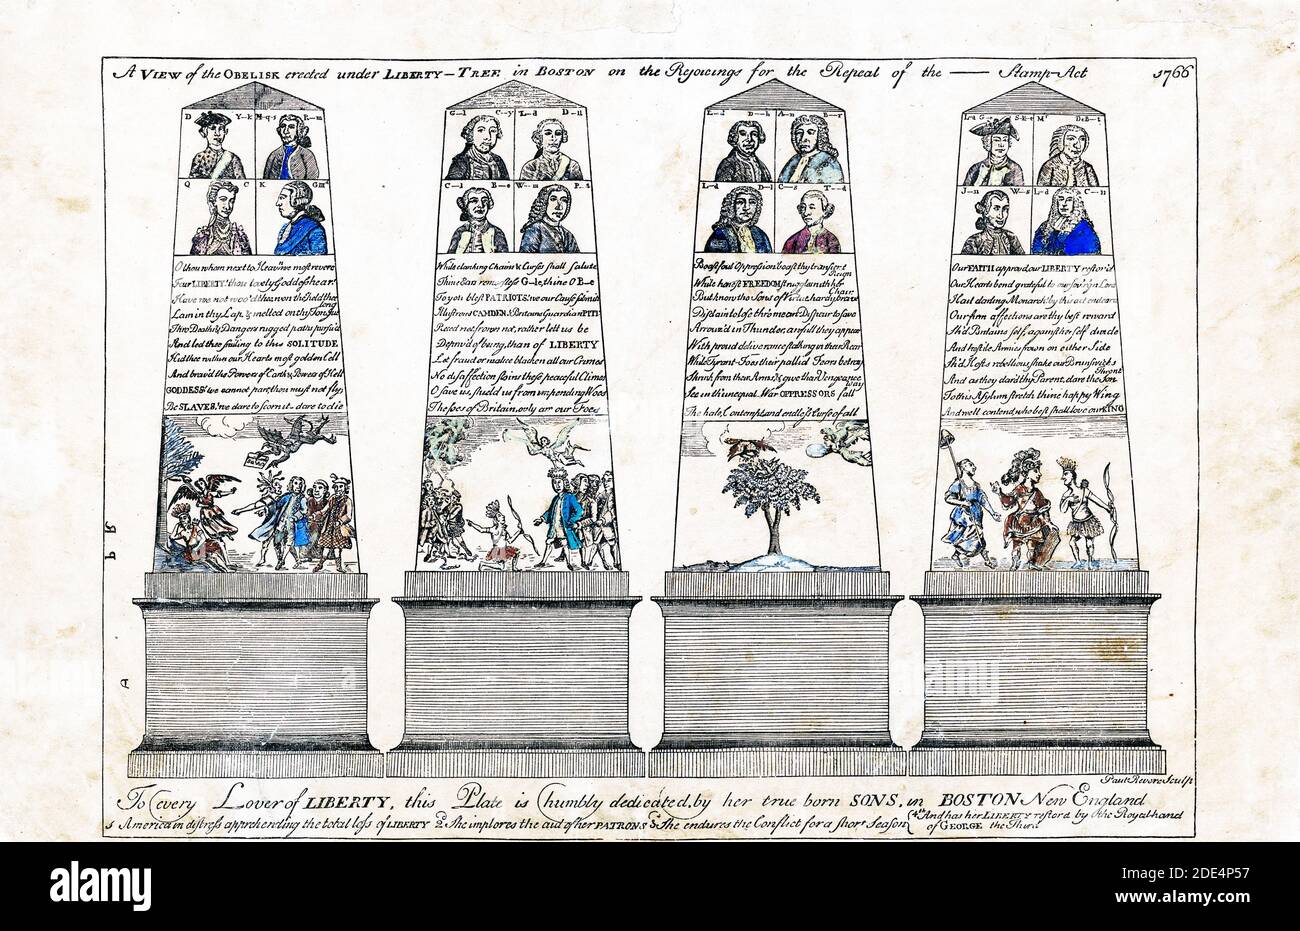 A VIEW of the OBELISK erected under LIBERTY-TREE in BOSTON on the Rejoicings for the Repeal of the — Stamp-Act 1766
D Y-k M-q-s R-m
Q C K G III
O thou whom next to Heav'n we most revere
Fair LIBERTY! thou lovely Goddess hear!
Have we not woo'd thee, won thee, held thee long
Lain in thy Lap & melted on thy Tongue
Thro Deaths & Dangers rugged paths pursu'd
And led thee smiling to this SOLITUDE
Hid thee within our Hearts most golden Cell
And brav'd the Powers of Earth & Powers of Hell
GODDESS! we cannot part, thou must not fly;
Be SLAVES! we dare to scorn it, dare to die
G-l C-y L-d D-ll
C-l B-e W-m P-t
While clanking Chains & Curses shall salute
Thine Ears remorseless G-le, thine O B-e
To you blest PATRIOTS! we our Cause submit
Illustrious CAMDEN, Britains Guardian PITT
Recede not, frown not, rather let us be
Depriv'd of being, than of LIBERTY
Let fraud or malice blacken all our Crimes
No disaffection stains these peaceful Climes
O save us, shield us from impending Woes
The foes of Britain, only are our Foes
L-d D-h A-n B-r
L-d D-l C-s T-d
Boast foul Oppression, boast thy transient Reign
While honest FREEDOM struggles with her Chain
But know the Sons of Virtue, hardy, brave
Disdain to lose thro mean Dispair to save
Arrou'd in Thunder, awfull they appear
With proud deliverance stalking in their Rear
While Tyrant-Foes their pallid Fears betray
Shrink from their Arms, & give their Vengeance way
See in th'unequal War OPPRESSORS fall
The hate, Contempt, and endless Curse of all
L-d G-e S-k-e Mr DeB-t
J-n W-s L-d C-n
Our FAITH approv'd, our LIBERTY restor'd
Our Hearts bend grateful to our sov'r'gn Lord
Hail darling Monarch! by this act endear'd
Our firm affections are thy best reward
Sh'd Britains self, against her self divide
And hostile Armies frown on either Side
Sh'd Hosts rebellious, shake our Brunswick's Throne
And as they dar'd thy Parent, dare the Son
To this Asylum stretch thine happy Wing
And well contend, who best shall love our KING
Paul Revere Sculp
To every Lover of LIBERTY, this Plate is humbly dedicated, by her true born SONS, in BOSTON New England
1 America in distress apprehending the total loss of LIBERTY 2d. She implores the aid of her PATRONS 3d She endures the Conflict for a short Season 4th And has her LIBERTY restord by the Royal hand
of GEORGE the Third
alamy
Image ID: 2DE4P57
www.alamy.com